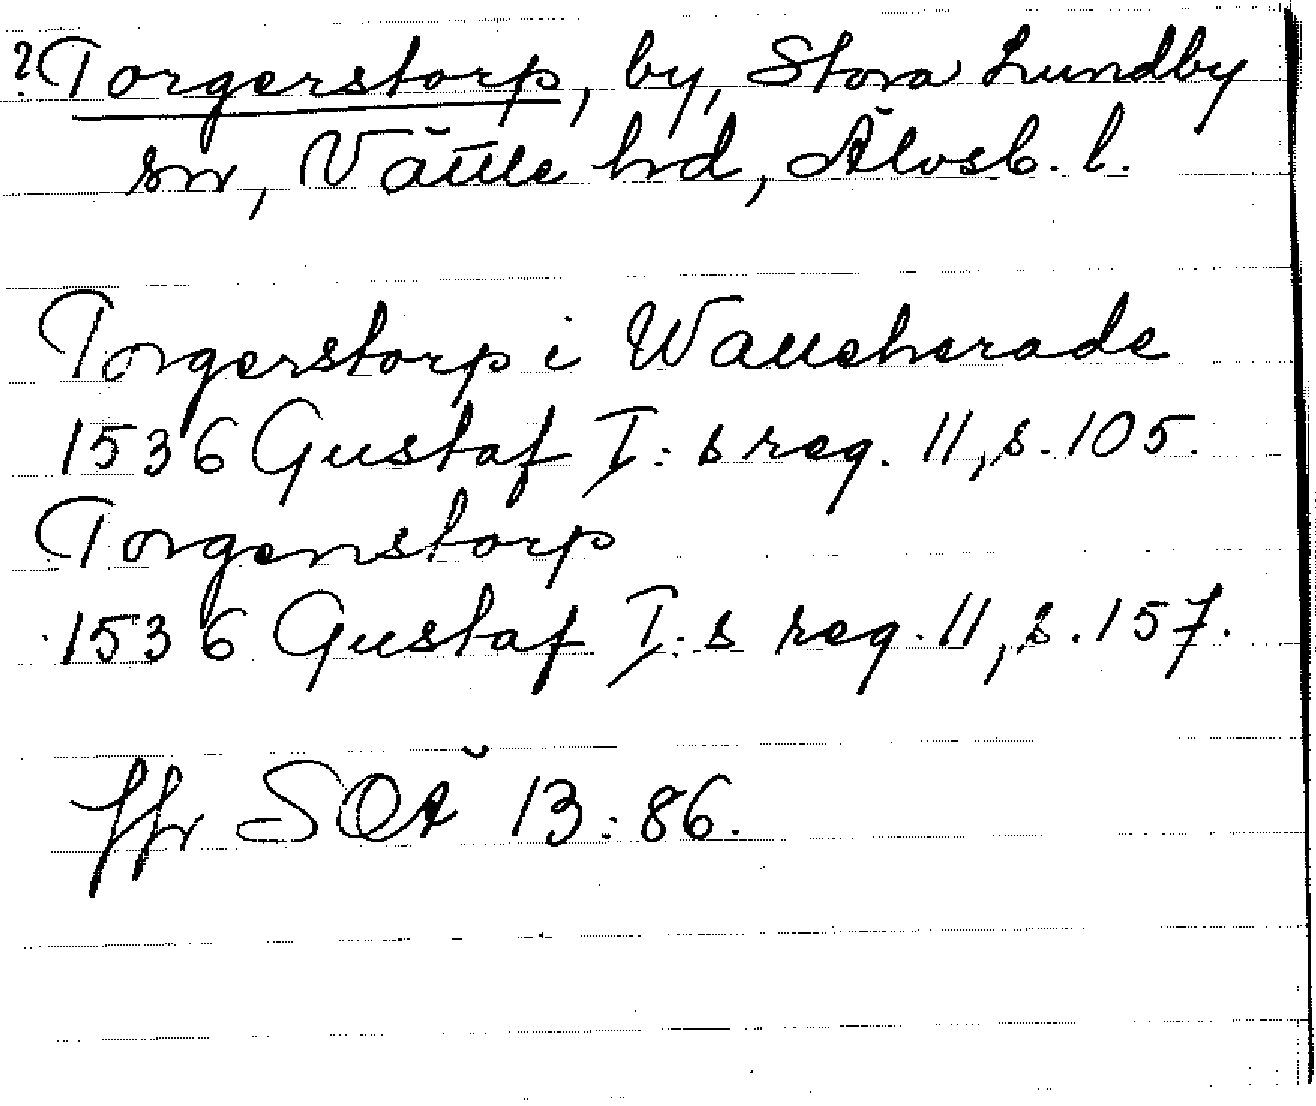 ? Torgerstorp, by, Stora Lundby
sn, Vättle hd, Älvsb. l.
Torgerstorp i Watleherade
1536 Gustaf I:s reg. 11, s. 105.
Torgenstorp
1536 Gustaf I:s reg. 11, s. 157.
Jfr SOÄ 13:86.